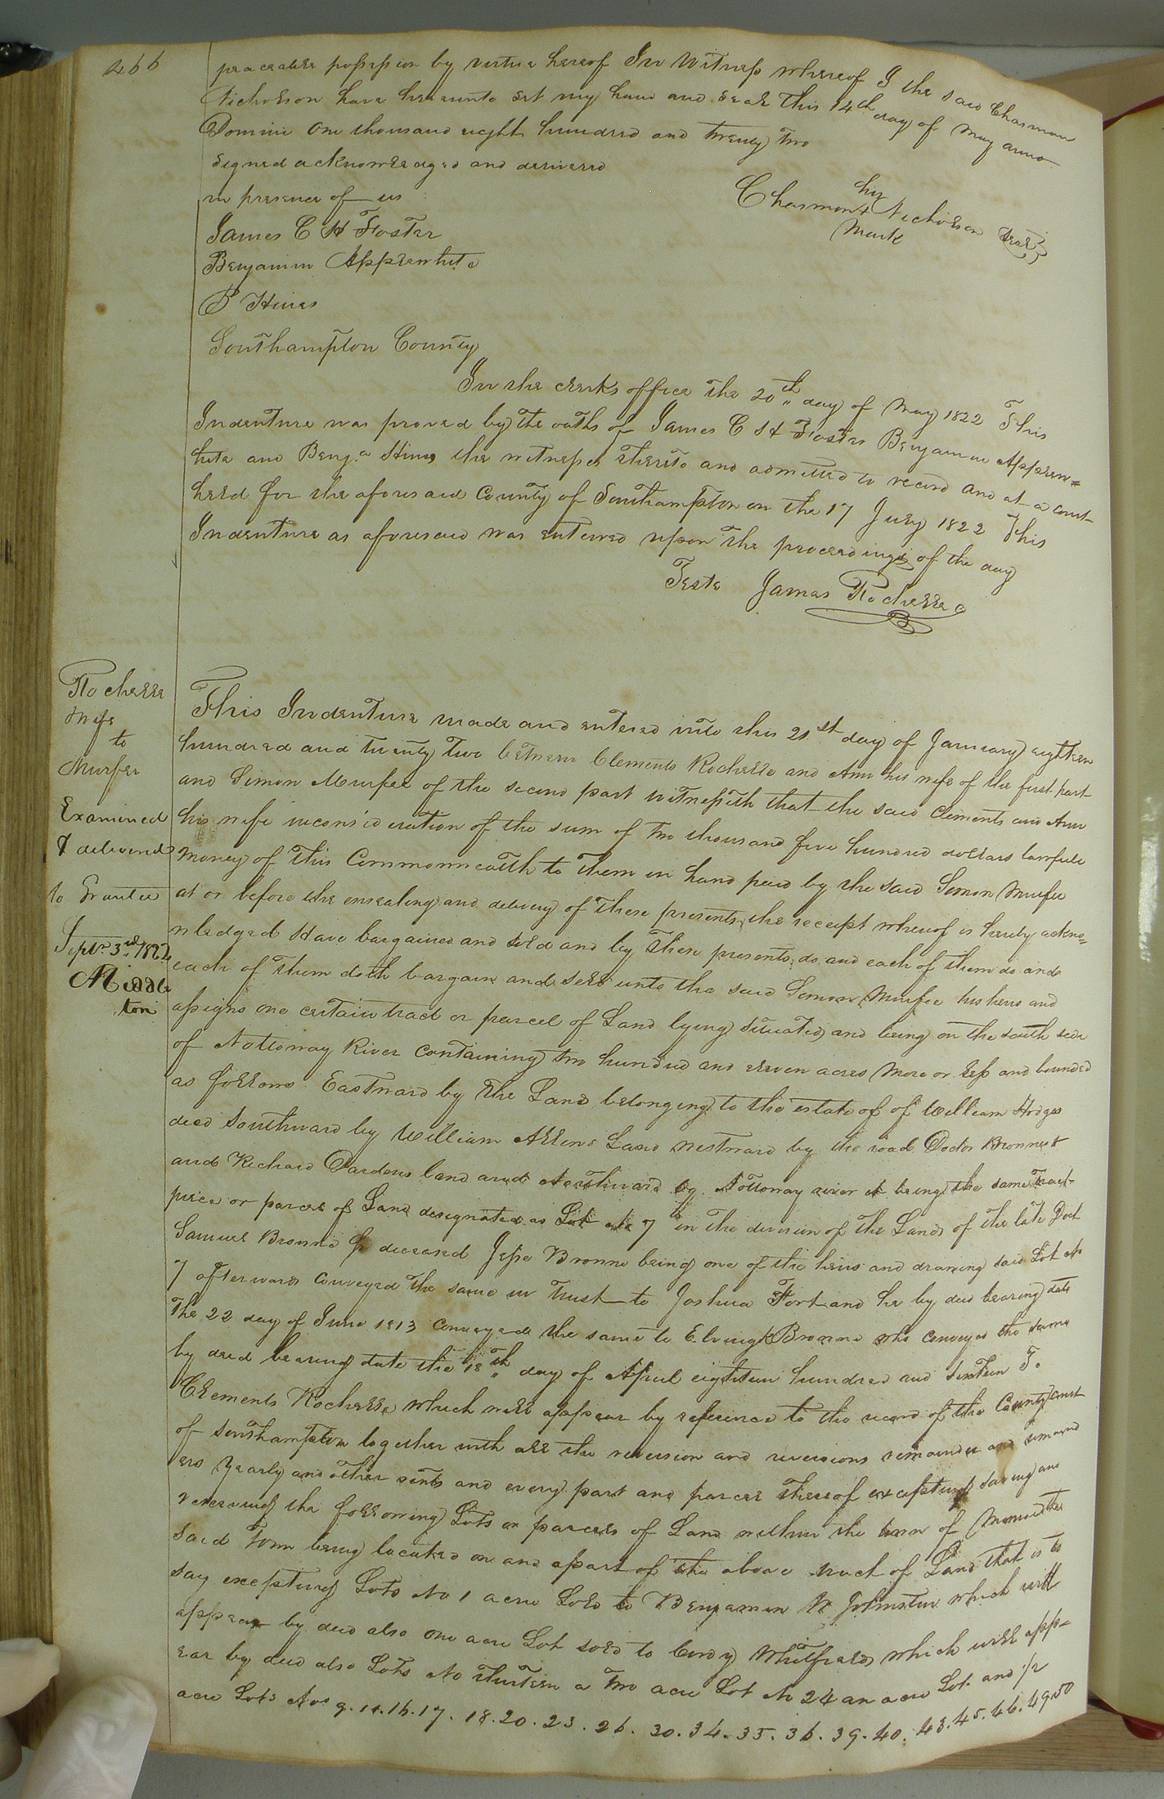 466
peaceable possession by virtue hereof In Witness whereof I the said Charmon
Nicholson have hereunto set my hand and seal this 14th day of May anno
Domini One thousand eight hundred and twenty two
Signed acknowledged and delivered
in presence of us
Charmon his Nicholson Seal
Mark
James C H Foster
Benjamin Applewhite
B Hines
Southampton County
In the clerks office the 20th day of May 1822 This
Indenture was proved by the oaths of James C H Foster Benjamin Applew=
hite and Benja Hines the witnesses thereto and admitted to record and at a court
held for the aforesaid County of Southampton on the 17 July 1822 This
Indenture as aforesaid was entered upon the proceedings of the day
Teste James Rochelle
Rochelle
Wife
to
Murfee
Examined
& delivered
to Grantee
Septr 3rd 1822
Middle
ton
This Indenture made and entered into this 21st day of January eighteen
hundred and twenty two between Clements Rochelle and Ann his wife of the first part
and Simon Murfee of the second part witnesseth that the said Clements and Ann
his wife inconsideration of the sum of two thousand five hundred dollars lawfull
money of this Commonwealth to them in hand paid by the said Simon Murfee
at or before the ensealing and delivery of these presents the receipt whereof is hereby ackno=
wledged Have bargained and sold and by these presents do and each of them do and
each of them doth bargain and sell unto the said Simon Murfee his heirs and
assigns one certain tract or parcel of Land lying situated and being on the south side
of Nottoway River Containing two hundred and eleven acres more or less and bounded
as follows Eastward by the Land belonging to the estate of of William Hodges
decd Southward by William Allens Land westward by the road Doctor Browne's
and Richard Dardens land and Northward by Nottoway river it being the same Tract
piece or parcel of Land designated as Lot No 7 in the division of the Lands of the late Doct
Samuel Browne deceased Jesse Browne being one of the heirs and drawing said Lot No
7 afterwards Conveyed the same in Trust to Joshua Fort and he by deed bearing date
The 22 day of June 1813 conveyed the same to Browne who conveyed the same
by deed bearing date the 18th day of April eighteen hundred and sixteen To
Clements Rochelle which will appear by reference to the record of the County Court
of Southampton together with all the reversion and reversions remainder and remaind
ers yearly and other rents and every part and parcel thereof excepting saving and
reserving the following Lots or parcels of Land within the town of the
said Town being located on and apart of the above tract of Land that is to
say excepting Lots No 1 acre Sold to Benjamin W Johnston which will
appear by deed also one acre Lot sold to Whitfield which will app=
ear by deed also Lots No thirteen a two acre Lot No 24 an acre Lot and 1/2
acre Lots Nos 9. 11. 16. 17. 18. 20. 23. 26. 30. 34. 35. 36. 39. 40. 43. 45. 46. 49. 50